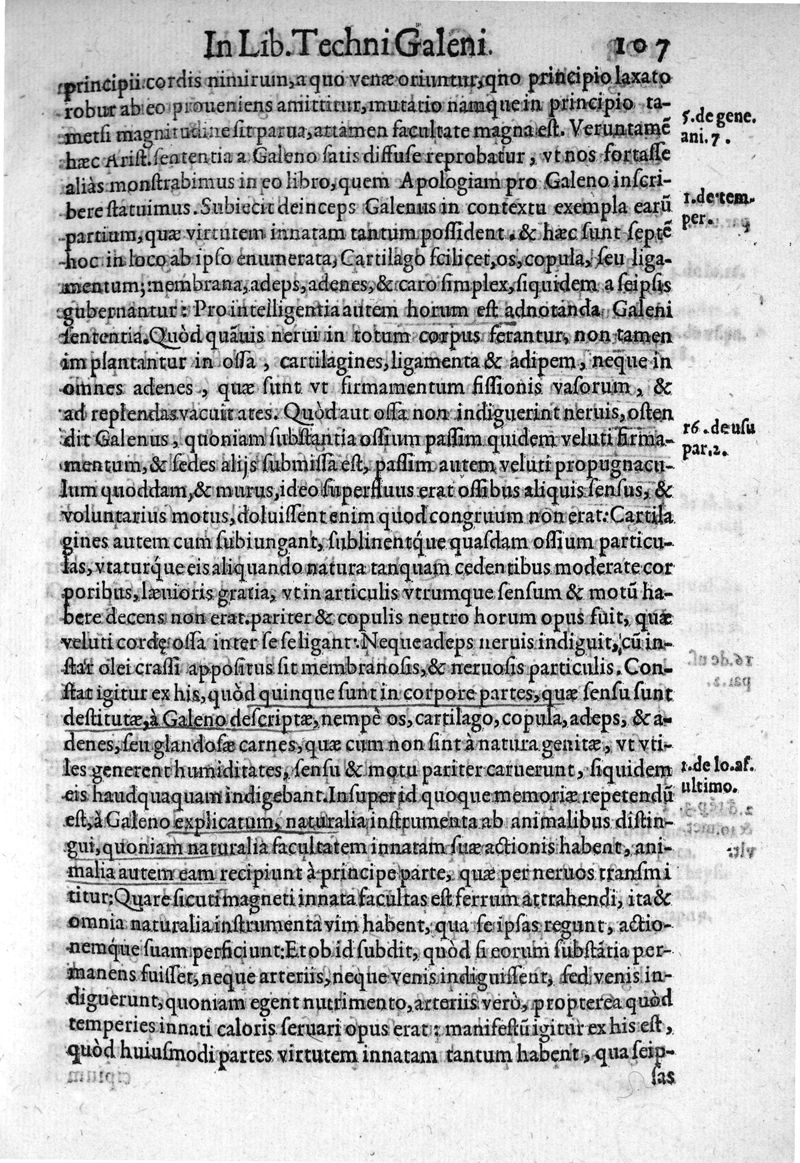 In Lib. Techni Galeni. 107
principii cordis nimirum, a quo venæ oriuntur, qno principio laxato
robur ab eo proueniens amittitur, mutatio namque in principio ta-
metsi magnitudine sit parua, attamen facultate magna est. Veruntamē
hæc Arist. sententia a Galeno satis diffuse reprobatur, vt nos fortasse
aliàs monstrabimus in eo libro, quem Apologiam pro Galeno inscri-
bere statuimus. Subiecit deinceps Galenus in contextu exempla earū
partium, quæ virtutem innatam tantum possident. & hæc sunt septē
hoc in loco ab ipso enumerata, Cartilago scilicet, os, copula, seu liga-
mentum; membrana, adeps, adenes, & caro simplex, siquidem a seipsis
gubernantur: Pro intelligentia autem horum est adnotanda Galeni
sententia. Quòd quāuis nerui in totum corpus ferantur, non tamen
implantantur in ossa, cartilagines, ligamenta & adipem, neque in
omnes adenes, quæ sunt vt firmamentum fissionis vasorum, &
ad replendas vacuitates. Quòd aut ossa non indiguerint neruis, osten
dit Galenus, quoniam substantia ossium passim quidem veluti firma-
mentum, & sedes alijs submissa est, passim autem veluti propugnacu-
lum quoddam, & murus, ideo superfluus erat ossibus aliquis sensus, &
voluntarius motus, doluissent enim quod congruum non erat: Cartila
gines autem cum subiungant, sublinentq́ue quasdam ossium particu-
las, vtaturq́ue eis aliquando natura tanquam cedentibus moderate cor
poribus, læuioris gratia, vt in articulis vtrumque sensum & motū ha-
bere decens non erat. pariter & copulis neutro horum opus fuit, quæ
veluti cordę ossa inter se se ligant: Neque adeps neruis indiguit, cū in-
star olei crassi appositus sit membranosis, & neruosis particulis. Con-
stat igitur ex his, quòd quinque sunt in corpore partes, quæ sensu sunt
destitutæ, à Galeno descriptæ, nempè os, cartilago, copula, adeps, & a-
denes, seu glandosæ carnes, quæ cum non sint à natura genitæ, vt vti-
les generent humiditates, sensu & motu pariter caruerunt, siquidem
eis haudquaquam indigebant. Insuper id quoque memoriæ repetendū
est, à Galeno explicatum, naturalia instrumenta ab animalibus distin-
gui, quoniam naturalia facultatem innatam suæ actionis habent, ani-
malia autem eam recipiunt à principe parte, quæ per neruos transmi
titur: Quare sicuti magneti innata facultas est ferrum attrahendi, ita &
omnia naturalia instrumenta vim habent, qua se ipsas regunt, actio-
nemq́ue suam perficiunt: Et ob id subdit, quòd si eorum substātia per-
manens fuisset, neque arteriis, neque venis indiguissent, sed venis in-
diguerunt, quoniam egent nutrimento, arteriis verò, propterea quòd
temperies innati caloris seruari opus erat: manifestū igitur ex his est,
quòd huiusmodi partes virtutem innatam tantum habent, qua seip-
sas
5. de gene.
ani. 7.
1. de tem.
per.
16. de usu
par. 2.
1. de lo. af.
ultimo.